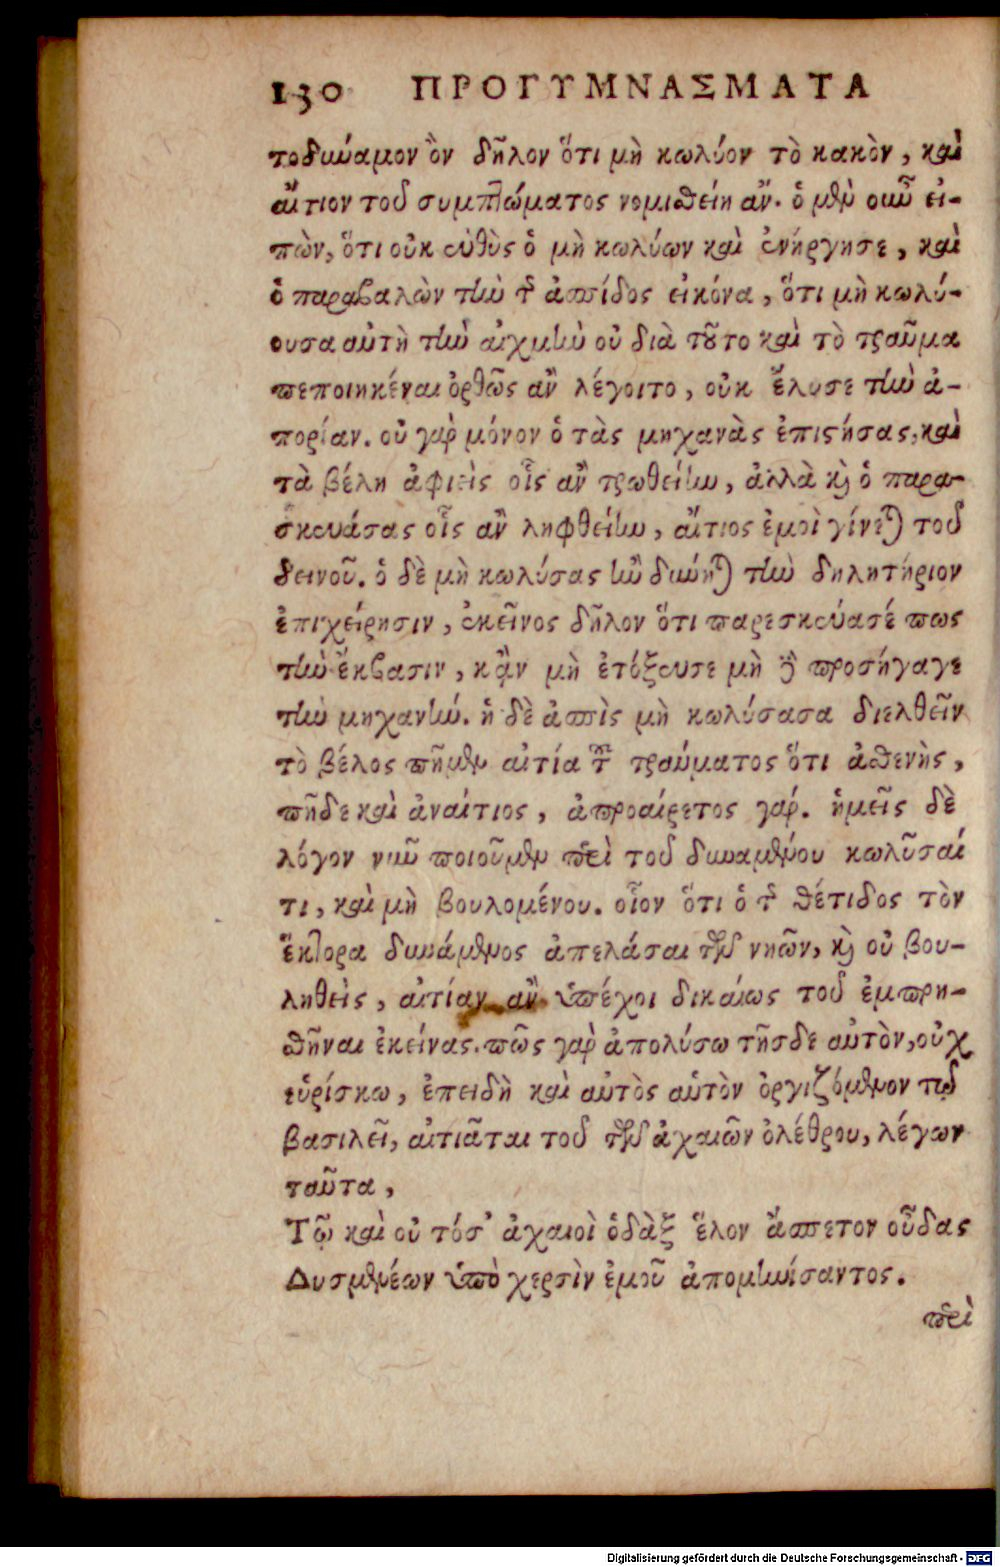 130 ΠΡΟΓΥΜΝΑΣΜΑΤΑ
τοδυνάμον ὂν δῆλον ὅτι μὴ κωλύον τὸ κακὸν, καὶ
αἴτιον τοῦ συμπτώματος νομισθείη ἄν. ὁ μὲν οὖν εἰ-
πὼν, ὅτι οὐκ εὐθὺς ὁ μὴ κωλύων καὶ ἐνήργησε, καὶ
ὁ παραβαλὼν τὴν τῆς ἀσπίδος εἰκόνα, ὅτι μὴ κωλύ-
ουσα αὐτὴ τὴν αἰχμὴν οὐ διὰ τοῦτο καὶ τὸ τραῦμα
πεποιηκέναι ὀρθῶς ἂν λέγοιτο, οὐκ ἔλυσε τὴν ἀ-
πορίαν. οὐ γὰρ μόνον ὁ τὰς μηχανὰς ἐπιστήσας, καὶ
τὰ βέλη ἀφιεὶς οἷς ἂν τρωθείην, ἀλλὰ καὶ ὁ παρα-
σκευάσας οἷς ἂν ληφθείην, αἴτιος ἐμοὶ γίνεται τοῦ
δεινοῦ. ὁ δὲ μὴ κωλύσας ἣν δύνηται τὴν δηλητήριον
ἐπιχείρησιν, ἐκεῖνος δῆλον ὅτι παρεσκεύασέ πως
τὴν ἔκβασιν, κἂν μὴ ἐτόξευσε μὴ δὲ προσήγαγε
τὴν μηχανήν. ἡ δὲ ἀσπὶς μὴ κωλύσασα διελθεῖν
τὸ βέλος πῆ μὲν αἰτία τοῦ τραύματος ὅτι ἀσθενὴς,
πῆ δε καὶ ἀναίτιος, ἀπροαίρετος γάρ. ἡμεῖς δὲ
λόγον νῦν ποιοῦμεν περὶ τοῦ δυναμένου κωλῦσαί
τι, καὶ μὴ βουλομένου. οἷον ὅτι ὁ τῆς Θέτιδος τὸν
ἕκτορα δυνάμενος ἀπελάσαι τῶν νηῶν, καὶ οὐ βου-
ληθεὶς, αἰτίαν ἂν ὑπέχοι δικαίως τοῦ ἐμπρη-
σθῆναι ἐκείνας. πῶς γὰρ ἀπολύσω τῆσδε αὐτὸν, οὐχ
εὑρίσκω, ἐπειδὴ καὶ αὐτὸς αὑτὸν ὀργιζόμενον τῷ
βασιλεῖ, αἰτιᾶται τοῦ τῶν ἀχαιῶν ὀλέθρου, λέγων
ταῦτα,
Τῷ καὶ οὐ τόσ' ἀχαιοὶ ὀδὰξ ἕλον ἄσπετον οὖδας
Δυσμενέων ὑπὸ χερσὶν ἐμοῦ ἀπομηνίσαντος.
περὶ
Digitalisierung gefördert durch die Deutsche Forschungsgemeinschaft - DFG